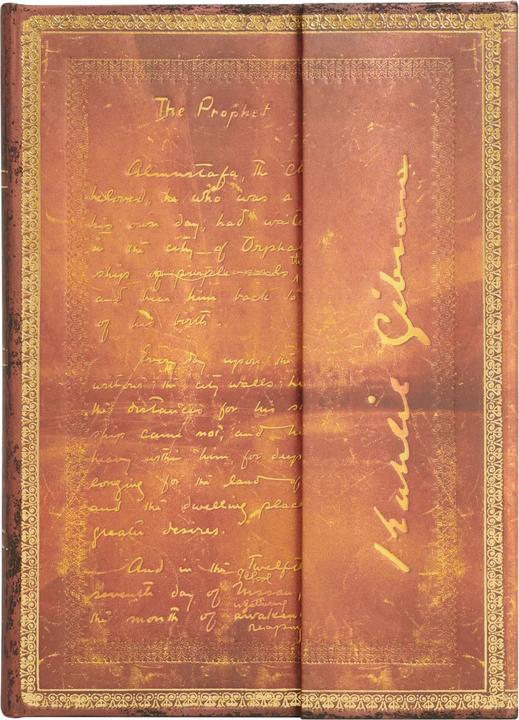 The Prophet
Almustafa, the
beloved, he who was a
his own day, had
in the city of
ships of purple
and bear him back to
of his birth.
Every day upon the
without the city walls, he
the distances for his
ships came not, and
heavy within him, for deep
longing for the land of
and the dwelling place
greater desires.
And in the Twelfth
school
seventh day of Nissan,
the month of
reaping
Kahlil Gibran